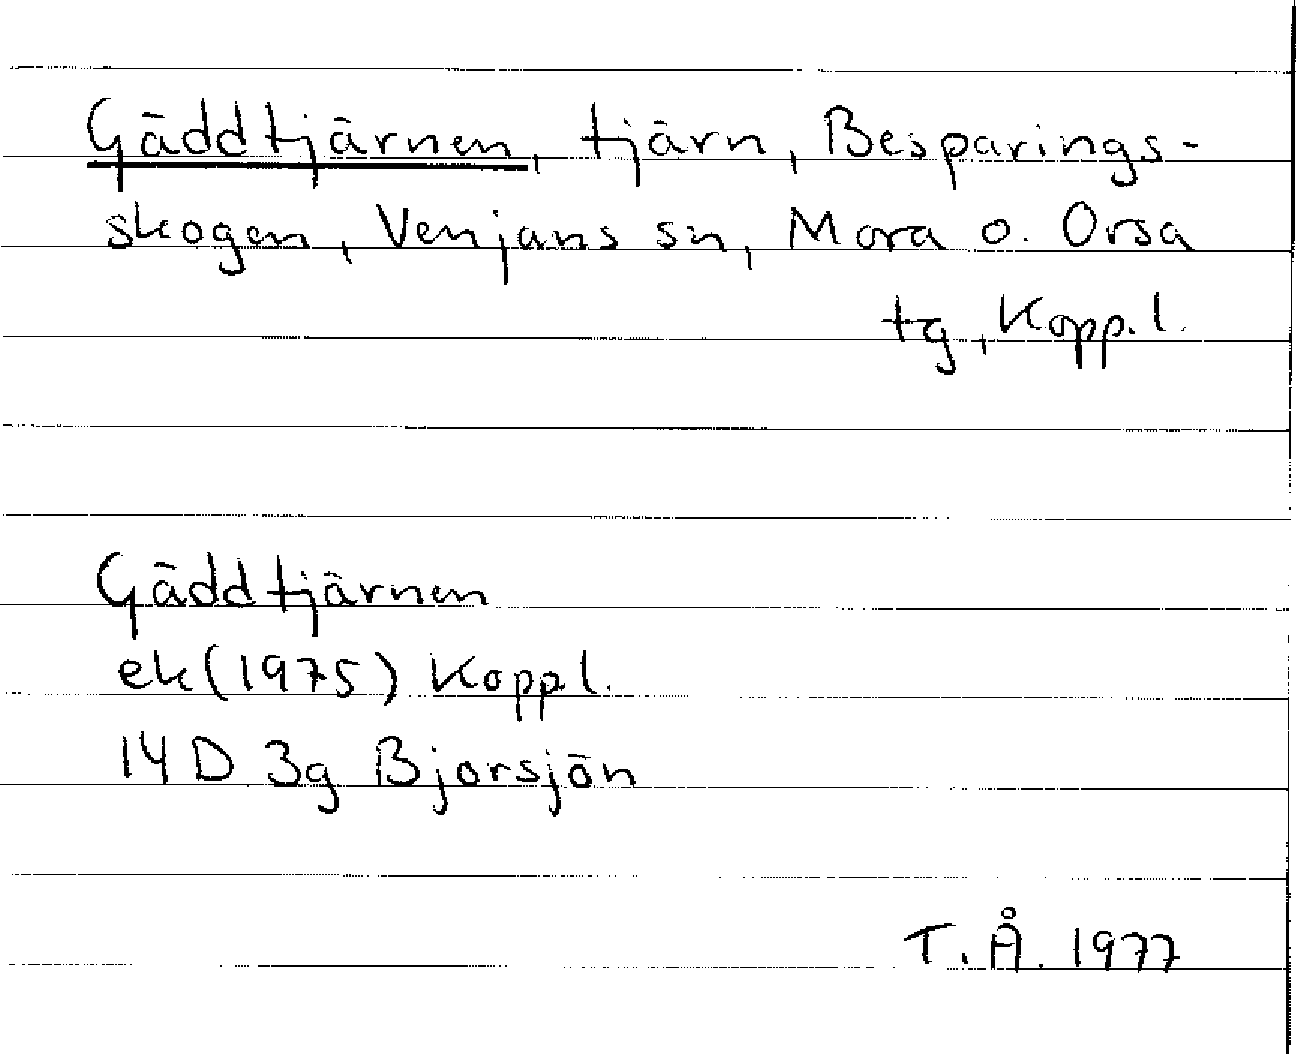 Gäddtjärnen, tjärn, Besparings-
skogen, Venjans sn, Mora o. Orsa
tg, Kopp. l.
Gäddtjärnen
ek (1975) Koppl.
14 D 3g Bjorsjön
T. Å. 1977